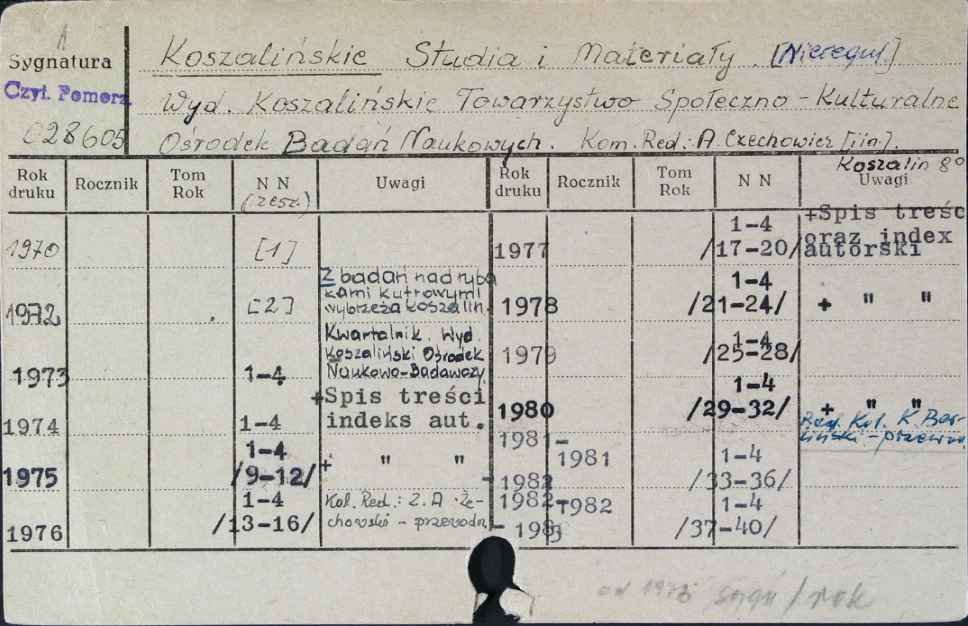 Sygnatura
Czyt. Pomorz.
028605
Koszalińskie Studia i Materiały. [Nieregul.]
Wyd. Koszalińskie Towarzystwo Społeczno-Kulturalne
Ośrodek Badań Naukowych. Kom. Red.: A. Czechowicz [i in.].
Koszalin 8°
Rok druku | Rocznik | Tom Rok | NN (zesz.) | Uwagi
1970 [1]
1972 [2] Z badań nad ryba
kami kutrowymi
wybrzeża koszalin.
Kwartalnik. Wyd.
Koszaliński Ośrodek
1973 1-4 Naukowo-Badawczy.
+Spis treści
1974 1-4 indeks aut.
1-4
1975 /9-12/ + " "
1-4 Kol. Red.: Z. A. Że-
1976 /13-16/ chowski - przewodn.
Rok druku | Rocznik | Tom Rok | NN | Uwagi
1-4 +Spis treśc
oraz index
1977 /17-20/ autorski
1-4
1978 /21-24/ + " "
1-4
1979 /25-28/
1-4
1980 /29-32/ + " "
Red. Kol. K. Bar-
liński - przewo
1981-
1981 1-4
-1982 /33-36/
1982- 1982 1-4
-1983 /37-40/
od 1973 sygn/rok